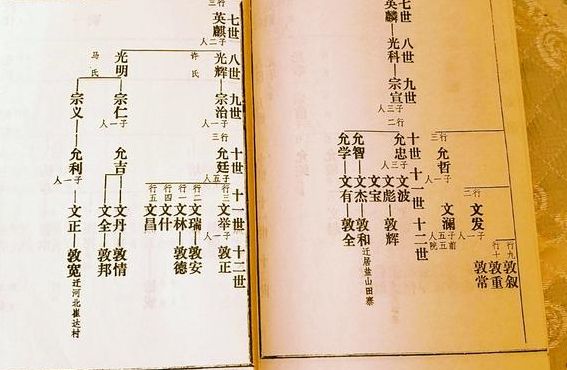 七世
英麟—光科—宗宣
子三人
八世
九世
行二
行三
十世
允哲
子一人
允忠
子三人
允智
允学
十一世
行二
文发
子一人
文澜
文波
文彪—敦辉
文宝
文杰—敦和迁居盐山田寨
文有—敦全
十二世
行九
敦叙
敦重
行十
敦常
七世
行三
英麒
子二人
八世
光辉
许氏
光明
马氏
九世
宗治
子一人
宗仁
子一人
宗义
十世
行三
允廷
子五人
允吉
允利
子一人
十一世
行三
文举
子一人
行二
文瑞—敦安
行一
文林—敦德
行四
文什
行五
文昌
文丹—敦情
文全—敦邦
文正—敦宽迁河北崔达村
十二世
敦正